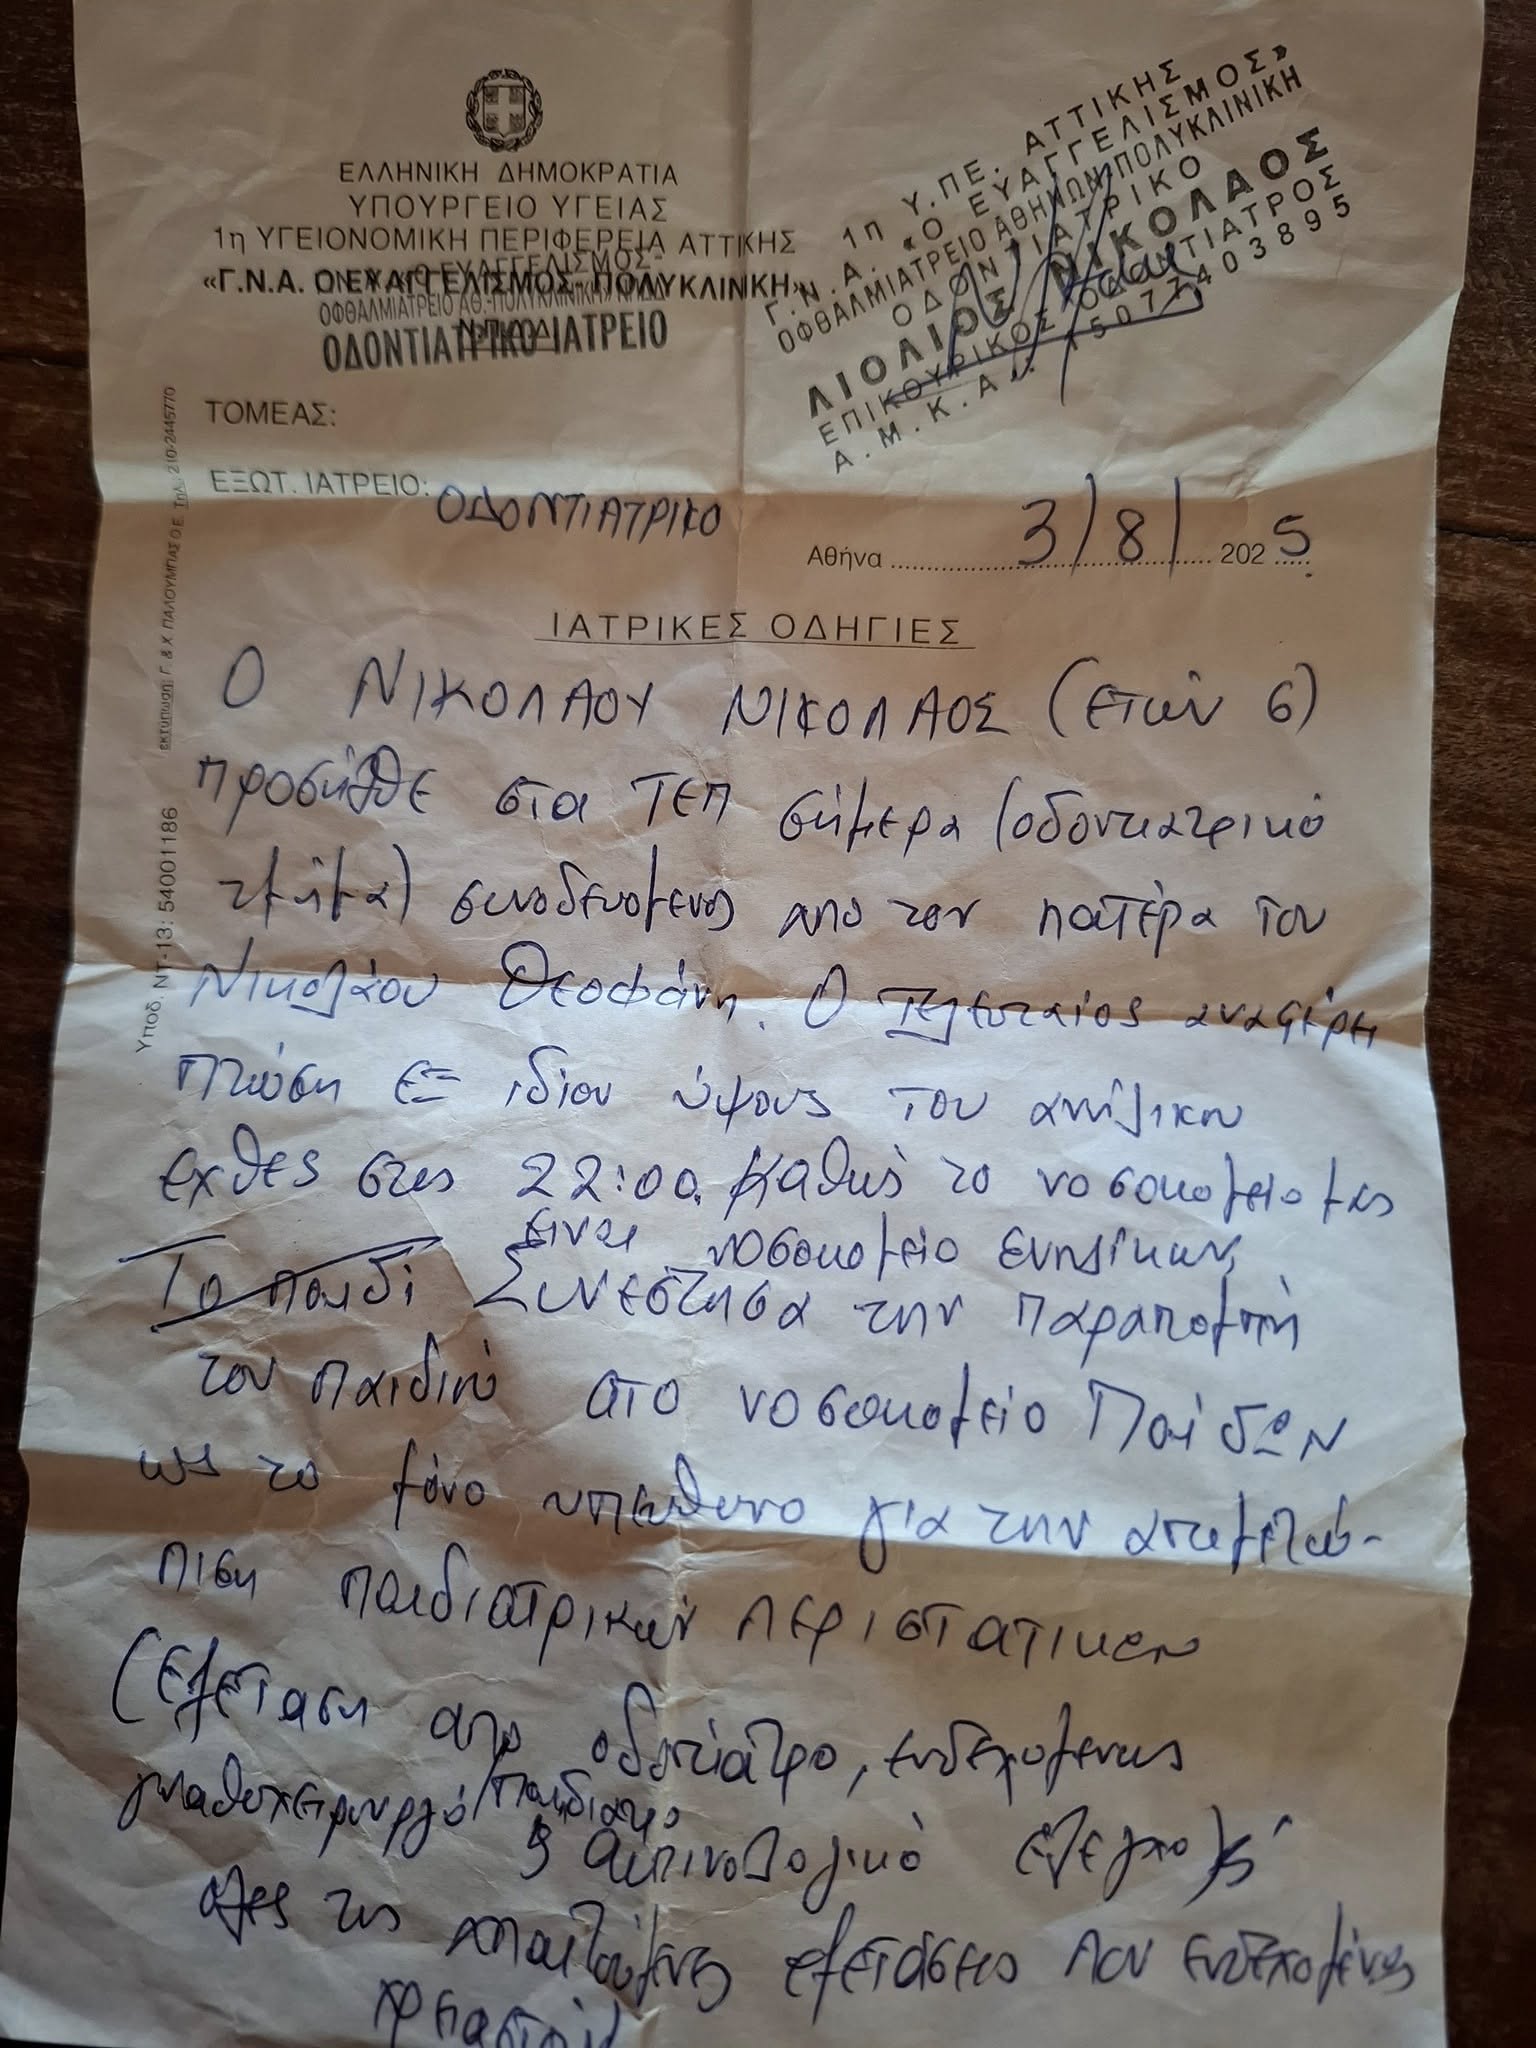 ΕΛΛΗΝΙΚΗ ΔΗΜΟΚΡΑΤΙΑ
ΥΠΟΥΡΓΕΙΟ ΥΓΕΙΑΣ
1η ΥΓΕΙΟΝΟΜΙΚΗ ΠΕΡΙΦΕΡΕΙΑ ΑΤΤΙΚΗΣ
«Γ.Ν.Α. Ο ΕΥΑΓΓΕΛΙΣΜΟΣ- ΠΟΛΥΚΛΙΝΙΚΗ»
Ν.Π.Δ.Δ.
Ο ΕΥΑΓΓΕΛΙΣΜΟΣ-
ΟΦΘΑΛΜΙΑΤΡΕΙΟ ΑΘ.-ΠΟΛΥΚΛΙΝΙΚΗ» ΝΠΔΔ
ΟΔΟΝΤΙΑΤΡΙΚΟ ΙΑΤΡΕΙΟ
1η Υ.ΠΕ. ΑΤΤΙΚΗΣ
Γ.Ν.Α. «Ο ΕΥΑΓΓΕΛΙΣΜΟΣ»
ΟΦΘΑΛΜΙΑΤΡΕΙΟ ΑΘΗΝΩΝ-ΠΟΛΥΚΛΙΝΙΚΗ
ΟΔΟΝΤΙΑΤΡΙΚΟ
ΛΙΟΛΙΟΣ ΝΙΚΟΛΑΟΣ
ΕΠΙΚΟΥΡΙΚΟΣ ΟΔΟΝΤΙΑΤΡΟΣ
Α.Μ.Κ.Α.: 15077403895
ΤΟΜΕΑΣ:
ΕΞΩΤ. ΙΑΤΡΕΙΟ: ΟΔΟΝΤΙΑΤΡΙΚΟ
Αθήνα 3/8/2025
Υποδ. ΝΤ-13: 54001186 ΕΚΤΥΠΩΣΗ: Γ. & Χ ΠΑΛΟΥΜΠΑΣ Ο.Ε. Τηλ.: 210-2445770
ΙΑΤΡΙΚΕΣ ΟΔΗΓΙΕΣ
Ο ΝΙΚΟΛΑΟΥ ΝΙΚΟΛΑΟΣ (ετών 6)
προσήλθε στα ΤΕΠ σήμερα (οδοντιατρικό
τμήμα) συνοδευόμενος απο τον πατέρα του
Νικολάου Θεοφάνη. Ο τελευταίος αναφέρει
πτώση εξ ιδίου ύψους του ανήλικου
εχθες στις 22:00. Καθώς το νοσοκομείο μας
είναι νοσοκομείο ενηλίκων,
Το παιδί Συνέστησα την παραπομπή
του παιδιού στο νοσοκομείο Παίδων
ως το μόνο υπεύθυνο για την αντιμετώ-
πιση παιδιατρικών περιστατικων
(εξέταση απο οδοντίατρο, ενδεχομενως
γναθοχειρουργό/παιδίατρο
& ακτινολογικό έλεγχο) &
όλες τις απαιτούμενες εξετάσεις που ενδεχομένως
χρειαστούν